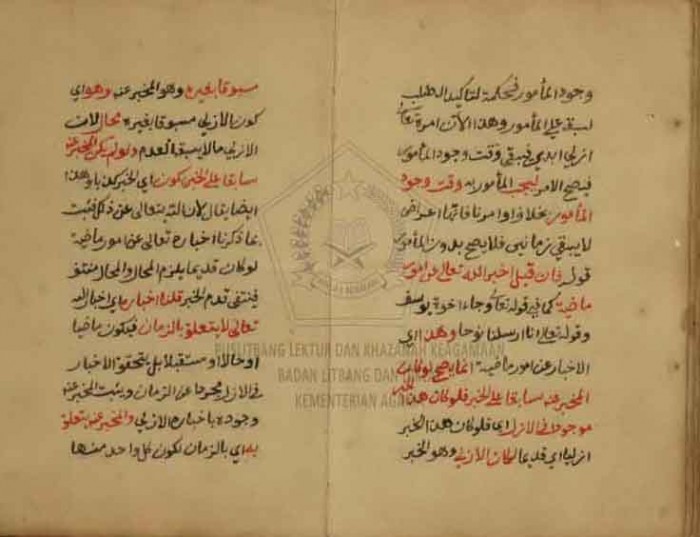 وجود المأمور فحكمة لتاكيد الطلب
ليبقى على المأمور وهذا الآن امره تعالى
ازلي ابدي فيبقى وقت وجود المأمور
فيصح الامر ليجب المأمور به وقت وجود
المأمور بخلاف اوامرنا فانها اعراض
لا يبقى زمانين فلا يصح بدون المأمور
قوله فان قيل اخبر الله تعالى عن امور
ماضية كما في قوله تعالى وجاء اخوة يوسف
وقوله تعالى انا ارسلنا نوحا وهذا اي
الاخبار عن امور ماضية انما يصح لو كان
المخبر عنه سابقا على الخبر فلو كان هذا الخبر
موجودا في الازل اي فلو كان هذا الخبر
ازليا اي قديما لكان الازلي وهو الخبر
مسبوقا بغيره وهو المخبر عنه وهو اي
كون الازلي مسبوقا بغيره محال لان
الازلي ما لا يسبقه العدم ولو لم يكن المخبر عنه
سابقا على الخبر كون اي الخبر كذبا وهذا
ايضا يقال لان الله تعالى عن ذلك فثبت
بما ذكرنا اخباره تعالى عن امور ماضية
لو كان قديما يلزم المحال والمحال منتف
فينتفي قدم الخبر قلنا اخباره اي اخبار الله
تعالى لا يتعلق بالزمان فيكون ماضيا
او حالا او مستقبلا بل يتحقق الاخبار
في الازل مجردا عن الزمان ويثبت المخبر عنه
وجوده باخباره الازلي والمخبر عنه يتعلق
به اي بالزمان لكون كل واحد منها
PUSLITBANG LEKTUR DAN KHAZANAH KEAGAMAAN
BADAN LITBANG DAN
KEMENTERIAN AGAMA